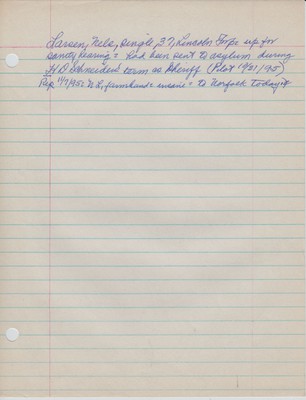 Larsen, Nels, single, 37, Lincoln Twp = up for
sanity hearing = had been sent to asylum during
H D Schneiders term as Sheriff (Pilot 1/21/95)
Rep 1/7/95: N L, farmhand = insane = to Norfolk today